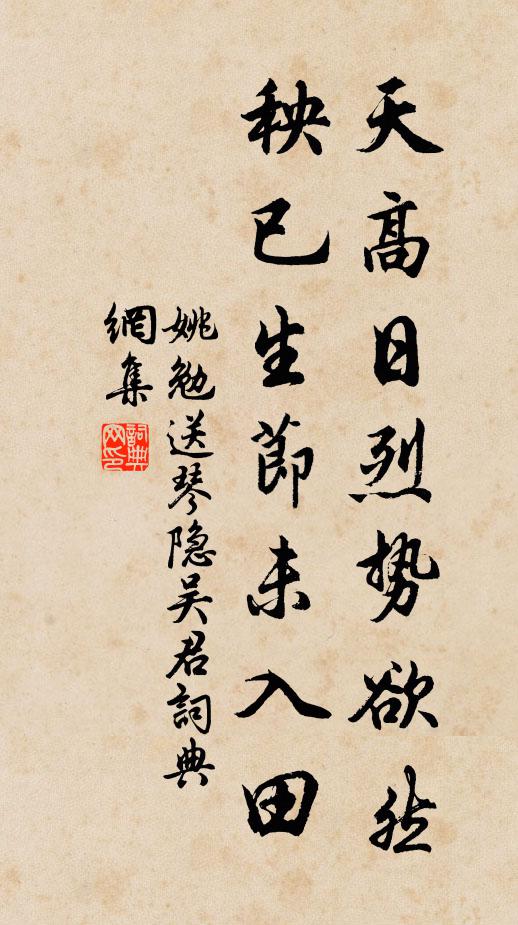 天高日烈势欲然
秧已生節未入田
姚勉送琴隐吴君詞典
網集
詞典网印